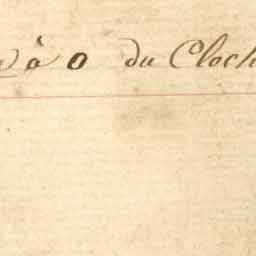 à 0 du Cloch